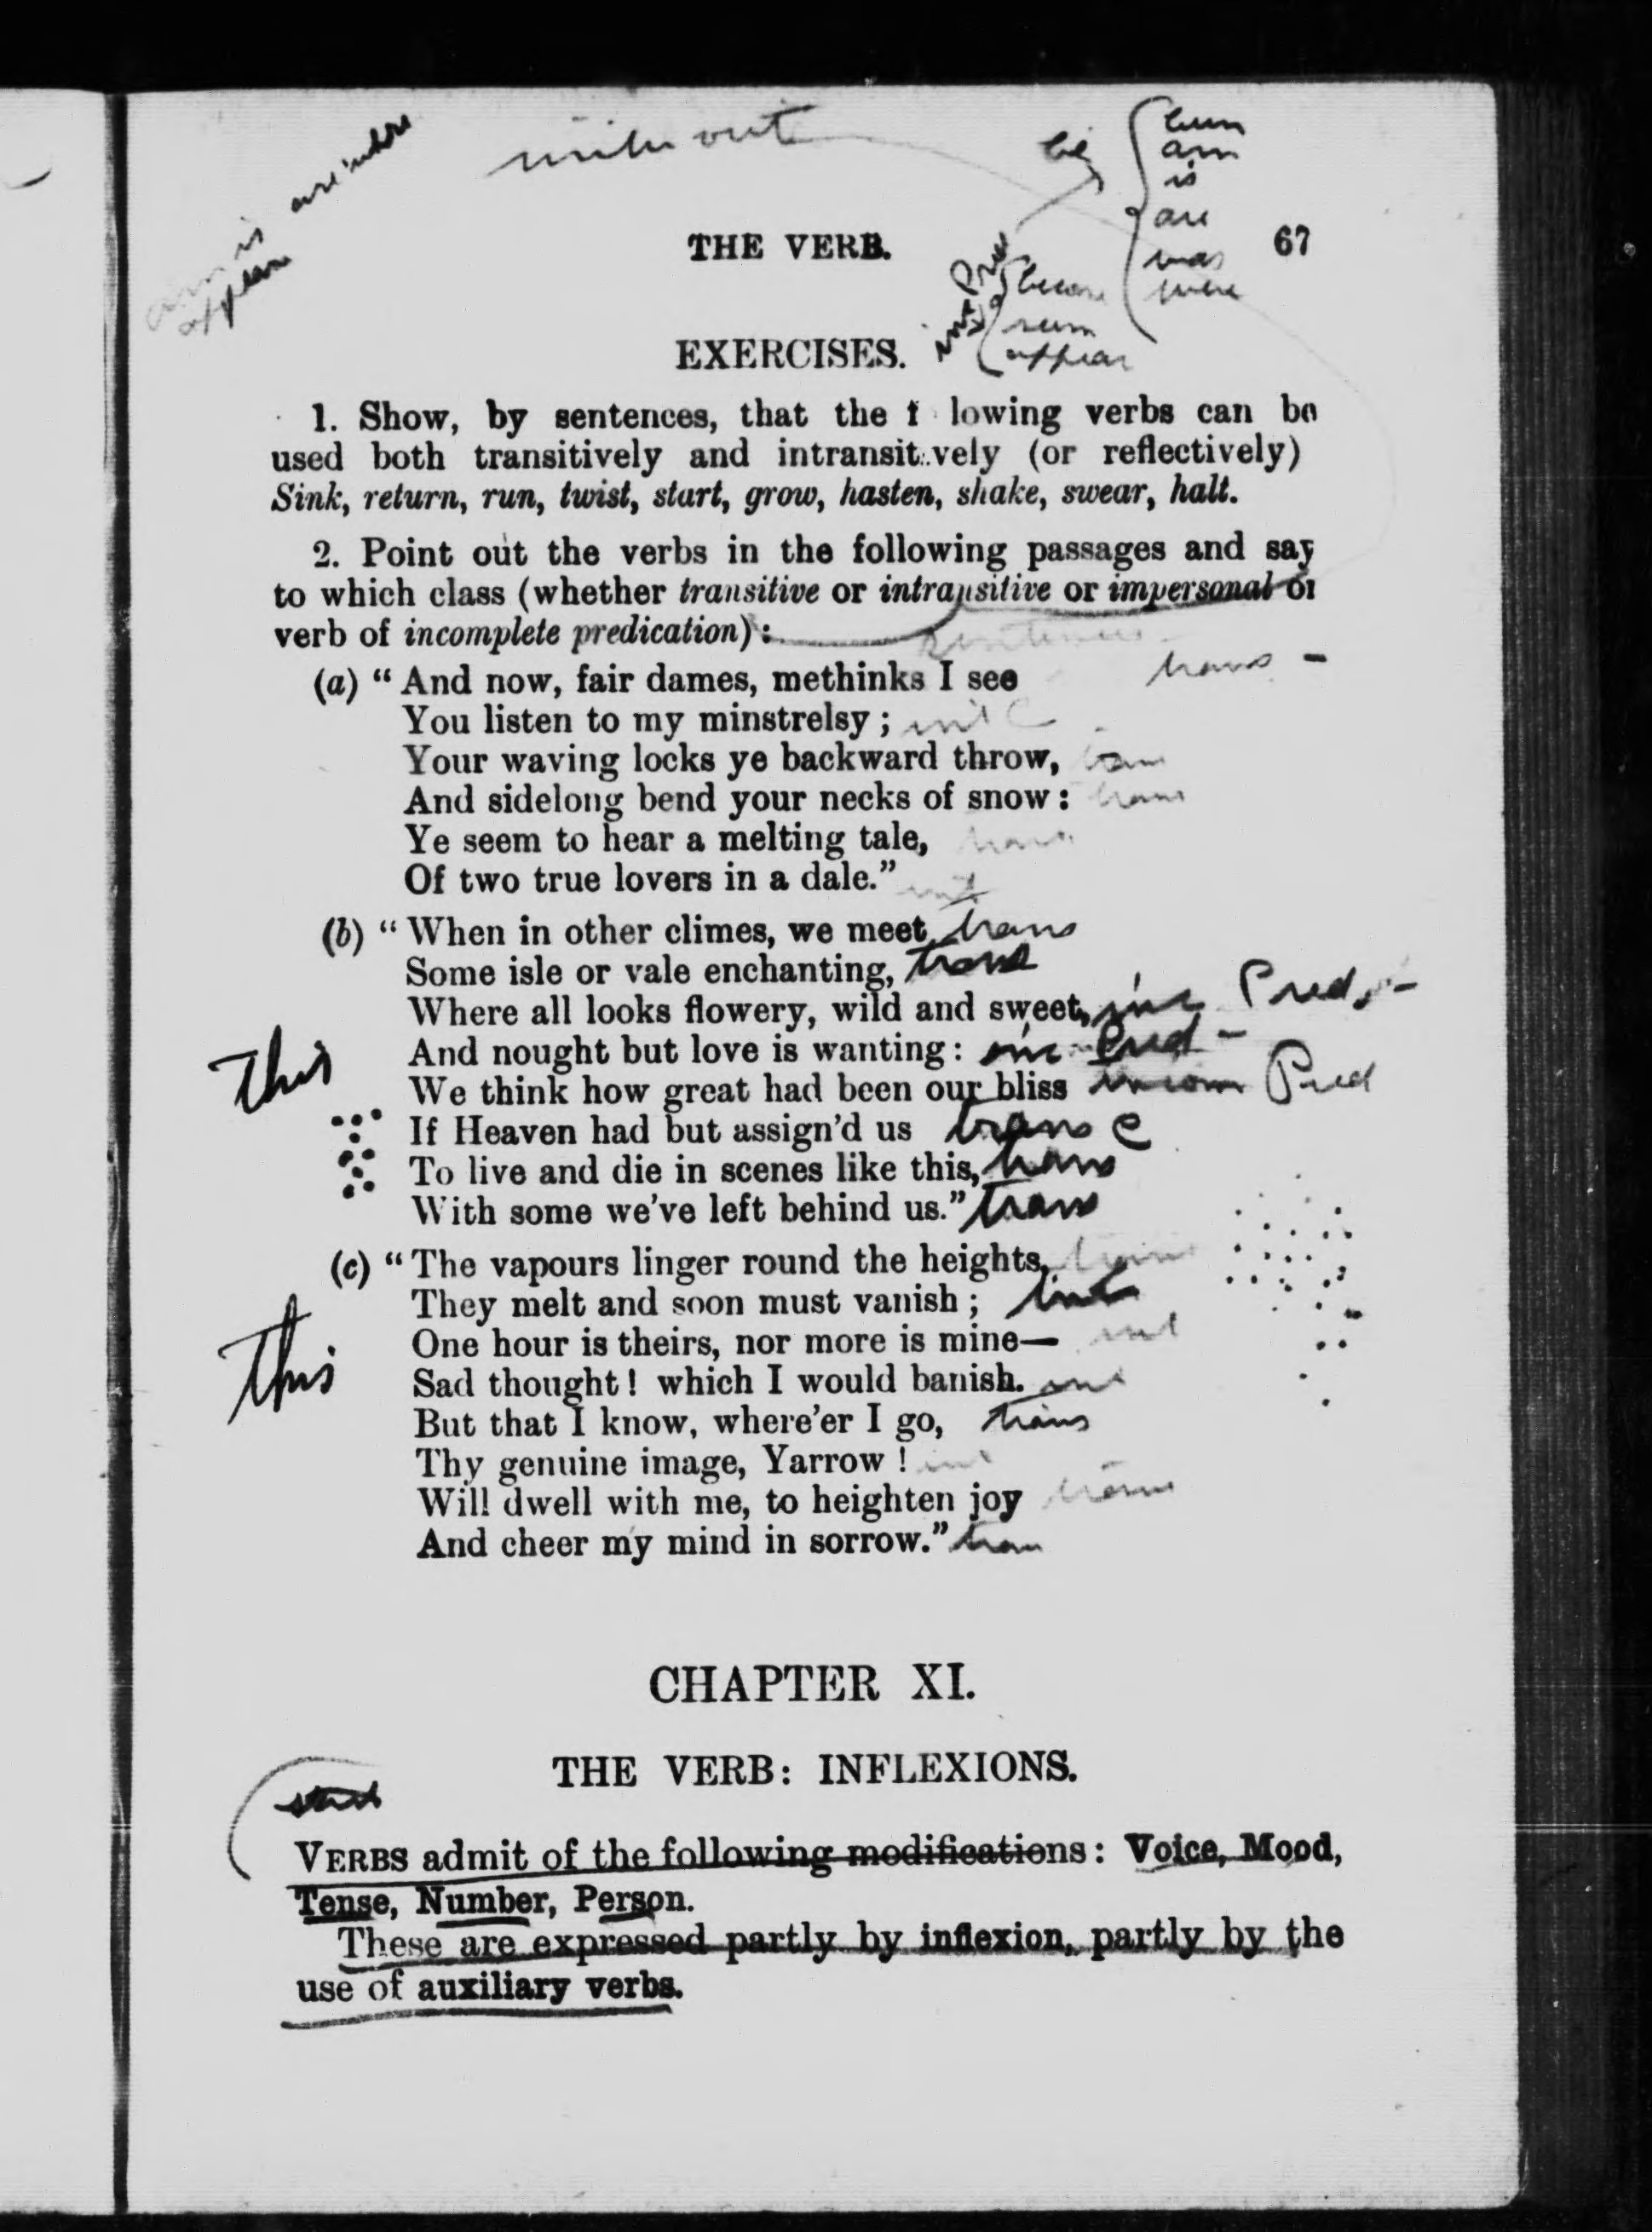 been
be am
is
are
was
were
THE VERB. 67
become
seem
appear
EXERCISES.
1. Show, by sentences, that the f lowing verbs can be
used both transitively and intransitively (or reflectively)
Sink, return, run, twist, start, grow, hasten, shake, swear, halt.
2. Point out the verbs in the following passages and say
to which class (whether transitive or intransitive or impersonal or
verb of incomplete predication):
(a) “And now, fair dames, methinks I see trans -
You listen to my minstrelsy;
Your waving locks ye backward throw,
And sidelong bend your necks of snow: trans
Ye seem to hear a melting tale, trans
Of two true lovers in a dale.” int
(b) “When in other climes, we meet trans
Some isle or vale enchanting, trans
Where all looks flowery, wild and sweet, inc Pred. -
And nought but love is wanting: inc Pred -
This
We think how great had been our bliss incom Pred
If Heaven had but assign'd us trans
To live and die in scenes like this, trans
With some we've left behind us.” trans
(c) “The vapours linger round the heights,
They melt and soon must vanish; int
One hour is theirs, nor more is mine— int
This
Sad thought! which I would banish.
But that I know, where'er I go, trans
Thy genuine image, Yarrow! int
Will dwell with me, to heighten joy trans
And cheer my mind in sorrow.” tran
CHAPTER XI.
THE VERB: INFLEXIONS.
VERBS admit of the following modifications: Voice, Mood,
Tense, Number, Person.
These are expressed partly by inflexion, partly by the
use of auxiliary verbs.